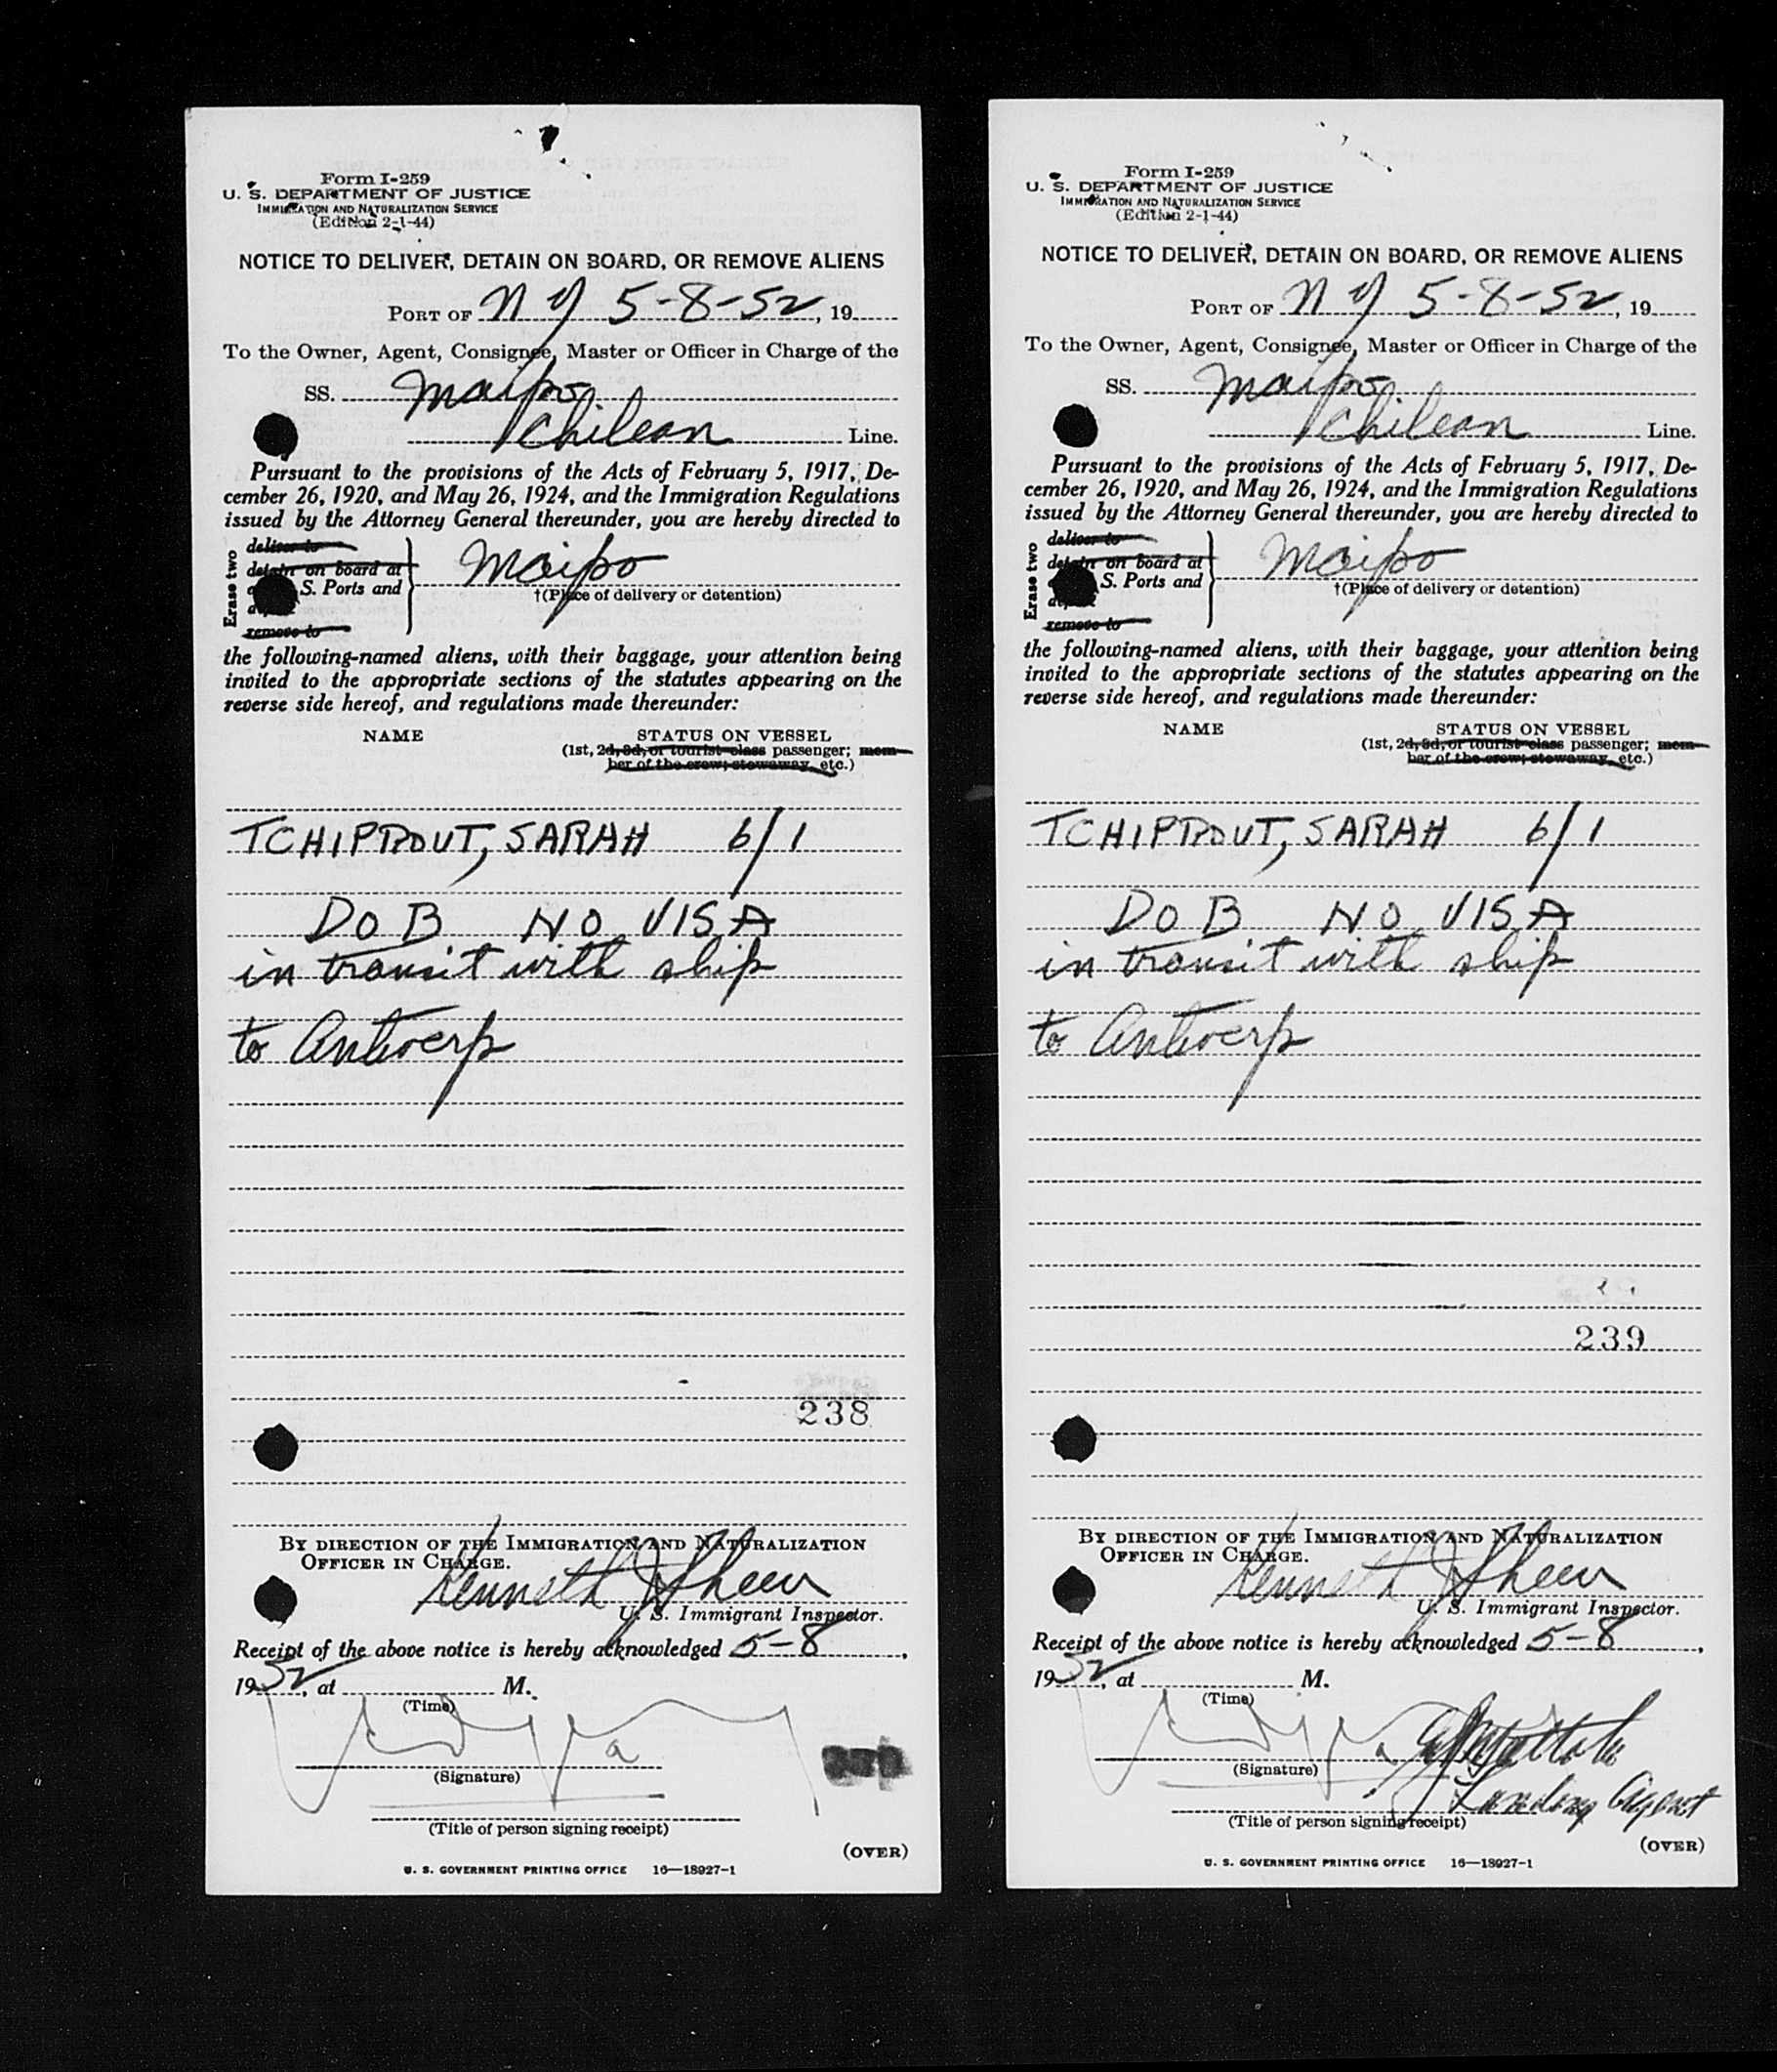 Form I-259
U. S. DEPARTMENT OF JUSTICE
IMMIGRATION AND NATURALIZATION SERVICE
(Edition 2-1-44)
NOTICE TO DELIVER, DETAIN ON BOARD, OR REMOVE ALIENS
PORT OF N Y 5-8-52, 19
To the Owner, Agent, Consignee, Master or Officer in Charge of the
SS. Maipo
Chilean Line.
Pursuant to the provisions of the Acts of February 5, 1917, De-
cember 26, 1920, and May 26, 1924, and the Immigration Regulations
issued by the Attorney General thereunder, you are hereby directed to
Erase two
deliver to
detain on board at
S. Ports and
remove to
Maipo
†(Place of delivery or detention)
the following-named aliens, with their baggage, your attention being
invited to the appropriate sections of the statutes appearing on the
reverse side hereof, and regulations made thereunder:
NAME STATUS ON VESSEL
(1st, 2d, 3d, or tourist class passenger; mem-
ber of the crew; stowaway, etc.)
TCHIPROUT, SARAH 6/1
DOB NO VISA
in transit with ship
to Antwerp
238
BY DIRECTION OF THE IMMIGRATION AND NATURALIZATION
OFFICER IN CHARGE.
Kenneth J Sheen
U. S. Immigrant Inspector.
Receipt of the above notice is hereby acknowledged 5-8,
1952, at M.
(Time)
(Signature)
(Title of person signing receipt)
(OVER)
U. S. GOVERNMENT PRINTING OFFICE 16—18927-1
Form I-259
U. S. DEPARTMENT OF JUSTICE
IMMIGRATION AND NATURALIZATION SERVICE
(Edition 2-1-44)
NOTICE TO DELIVER, DETAIN ON BOARD, OR REMOVE ALIENS
PORT OF N Y 5-8-52, 19
To the Owner, Agent, Consignee, Master or Officer in Charge of the
SS. Maipo
Chilean Line.
Pursuant to the provisions of the Acts of February 5, 1917, De-
cember 26, 1920, and May 26, 1924, and the Immigration Regulations
issued by the Attorney General thereunder, you are hereby directed to
Erase two
deliver to
detain on board at
S. Ports and
remove to
Maipo
†(Place of delivery or detention)
the following-named aliens, with their baggage, your attention being
invited to the appropriate sections of the statutes appearing on the
reverse side hereof, and regulations made thereunder:
NAME STATUS ON VESSEL
(1st, 2d, 3d, or tourist class passenger; mem-
ber of the crew; stowaway, etc.)
TCHIPROUT, SARAH 6/1
DOB NO VISA
in transit with ship
to Antwerp
239
BY DIRECTION OF THE IMMIGRATION AND NATURALIZATION
OFFICER IN CHARGE.
Kenneth J Sheen
U. S. Immigrant Inspector.
Receipt of the above notice is hereby acknowledged 5-8,
1952, at M.
(Time)
(Signature)
Landing Agent
(Title of person signing receipt)
(OVER)
U. S. GOVERNMENT PRINTING OFFICE 16—18927-1